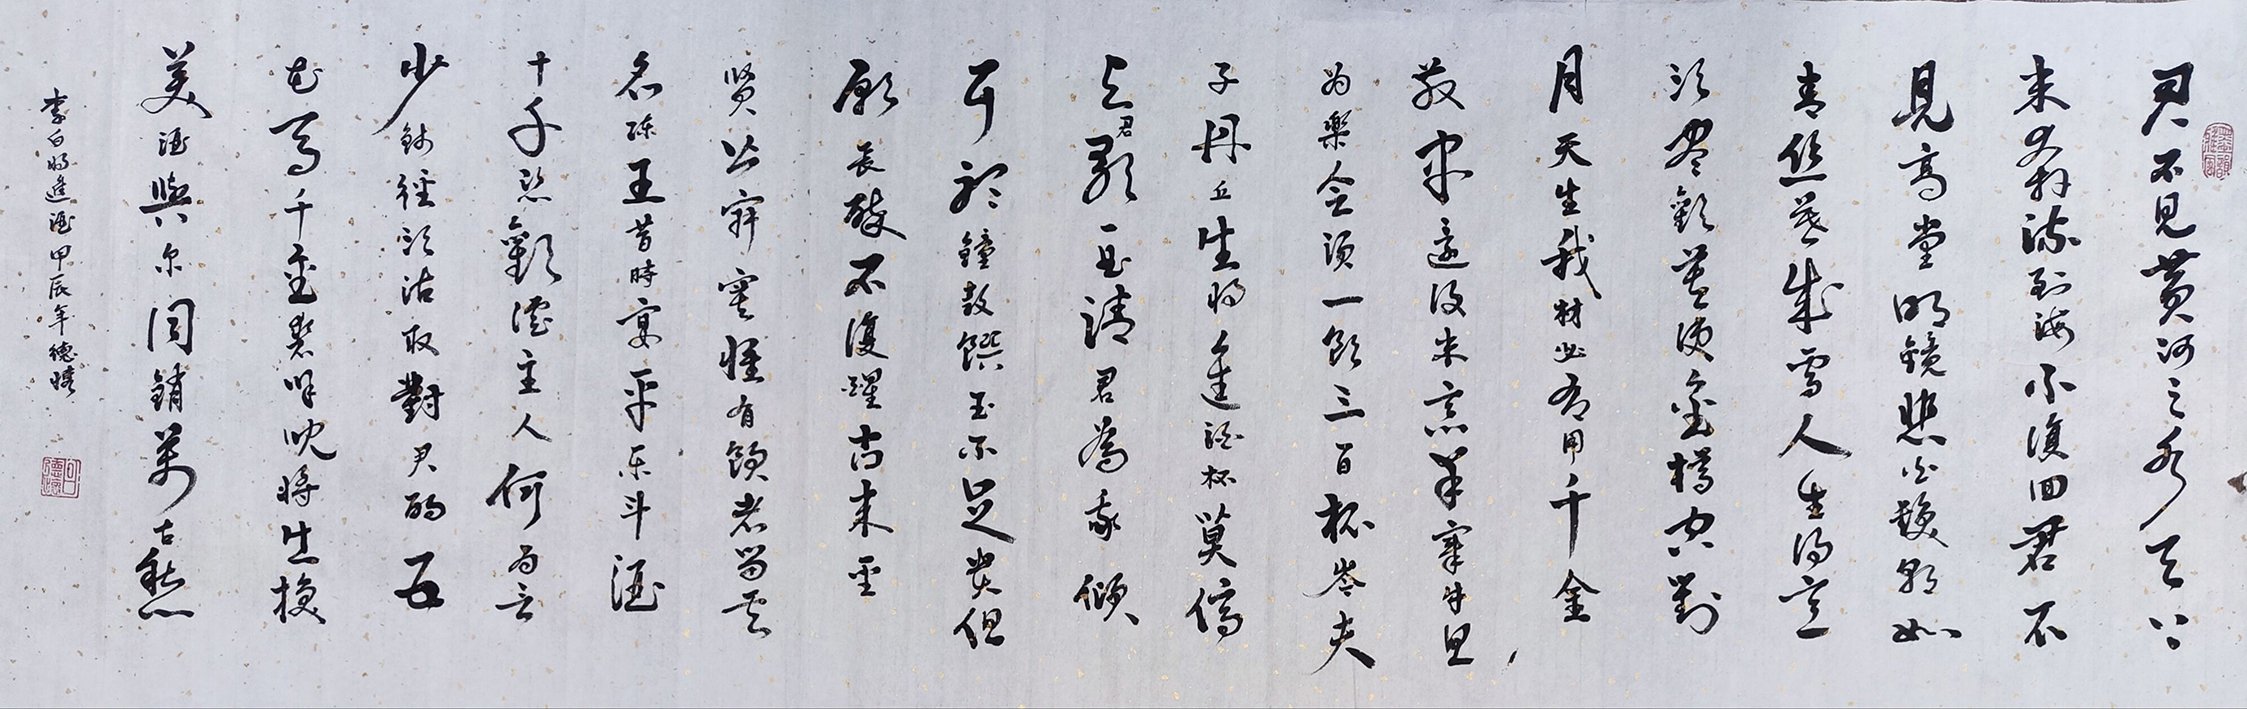 君不見黄河之水天上
来奔流到海不復回君不
見高堂明鏡悲白髮朝如
青丝暮成雪人生得意
须尽歡莫使金樽空對
月天生我材必有用千金
散尽還復来烹羊宰牛且
为樂会須一飲三百杯岑夫
子丹丘生将進酒杯莫停
与君歌一曲請君為我傾
耳听鐘鼓饌玉不足贵但
願長醉不復醒古来聖
賢皆寂寞惟有飲者留其
名陳王昔時宴平乐斗酒
十千恣歡謔主人何为言
少錢徑须沽取對君酌五
花馬千金裘呼児将出换
美酒與尔同銷萬古愁
李白将進酒甲辰年德